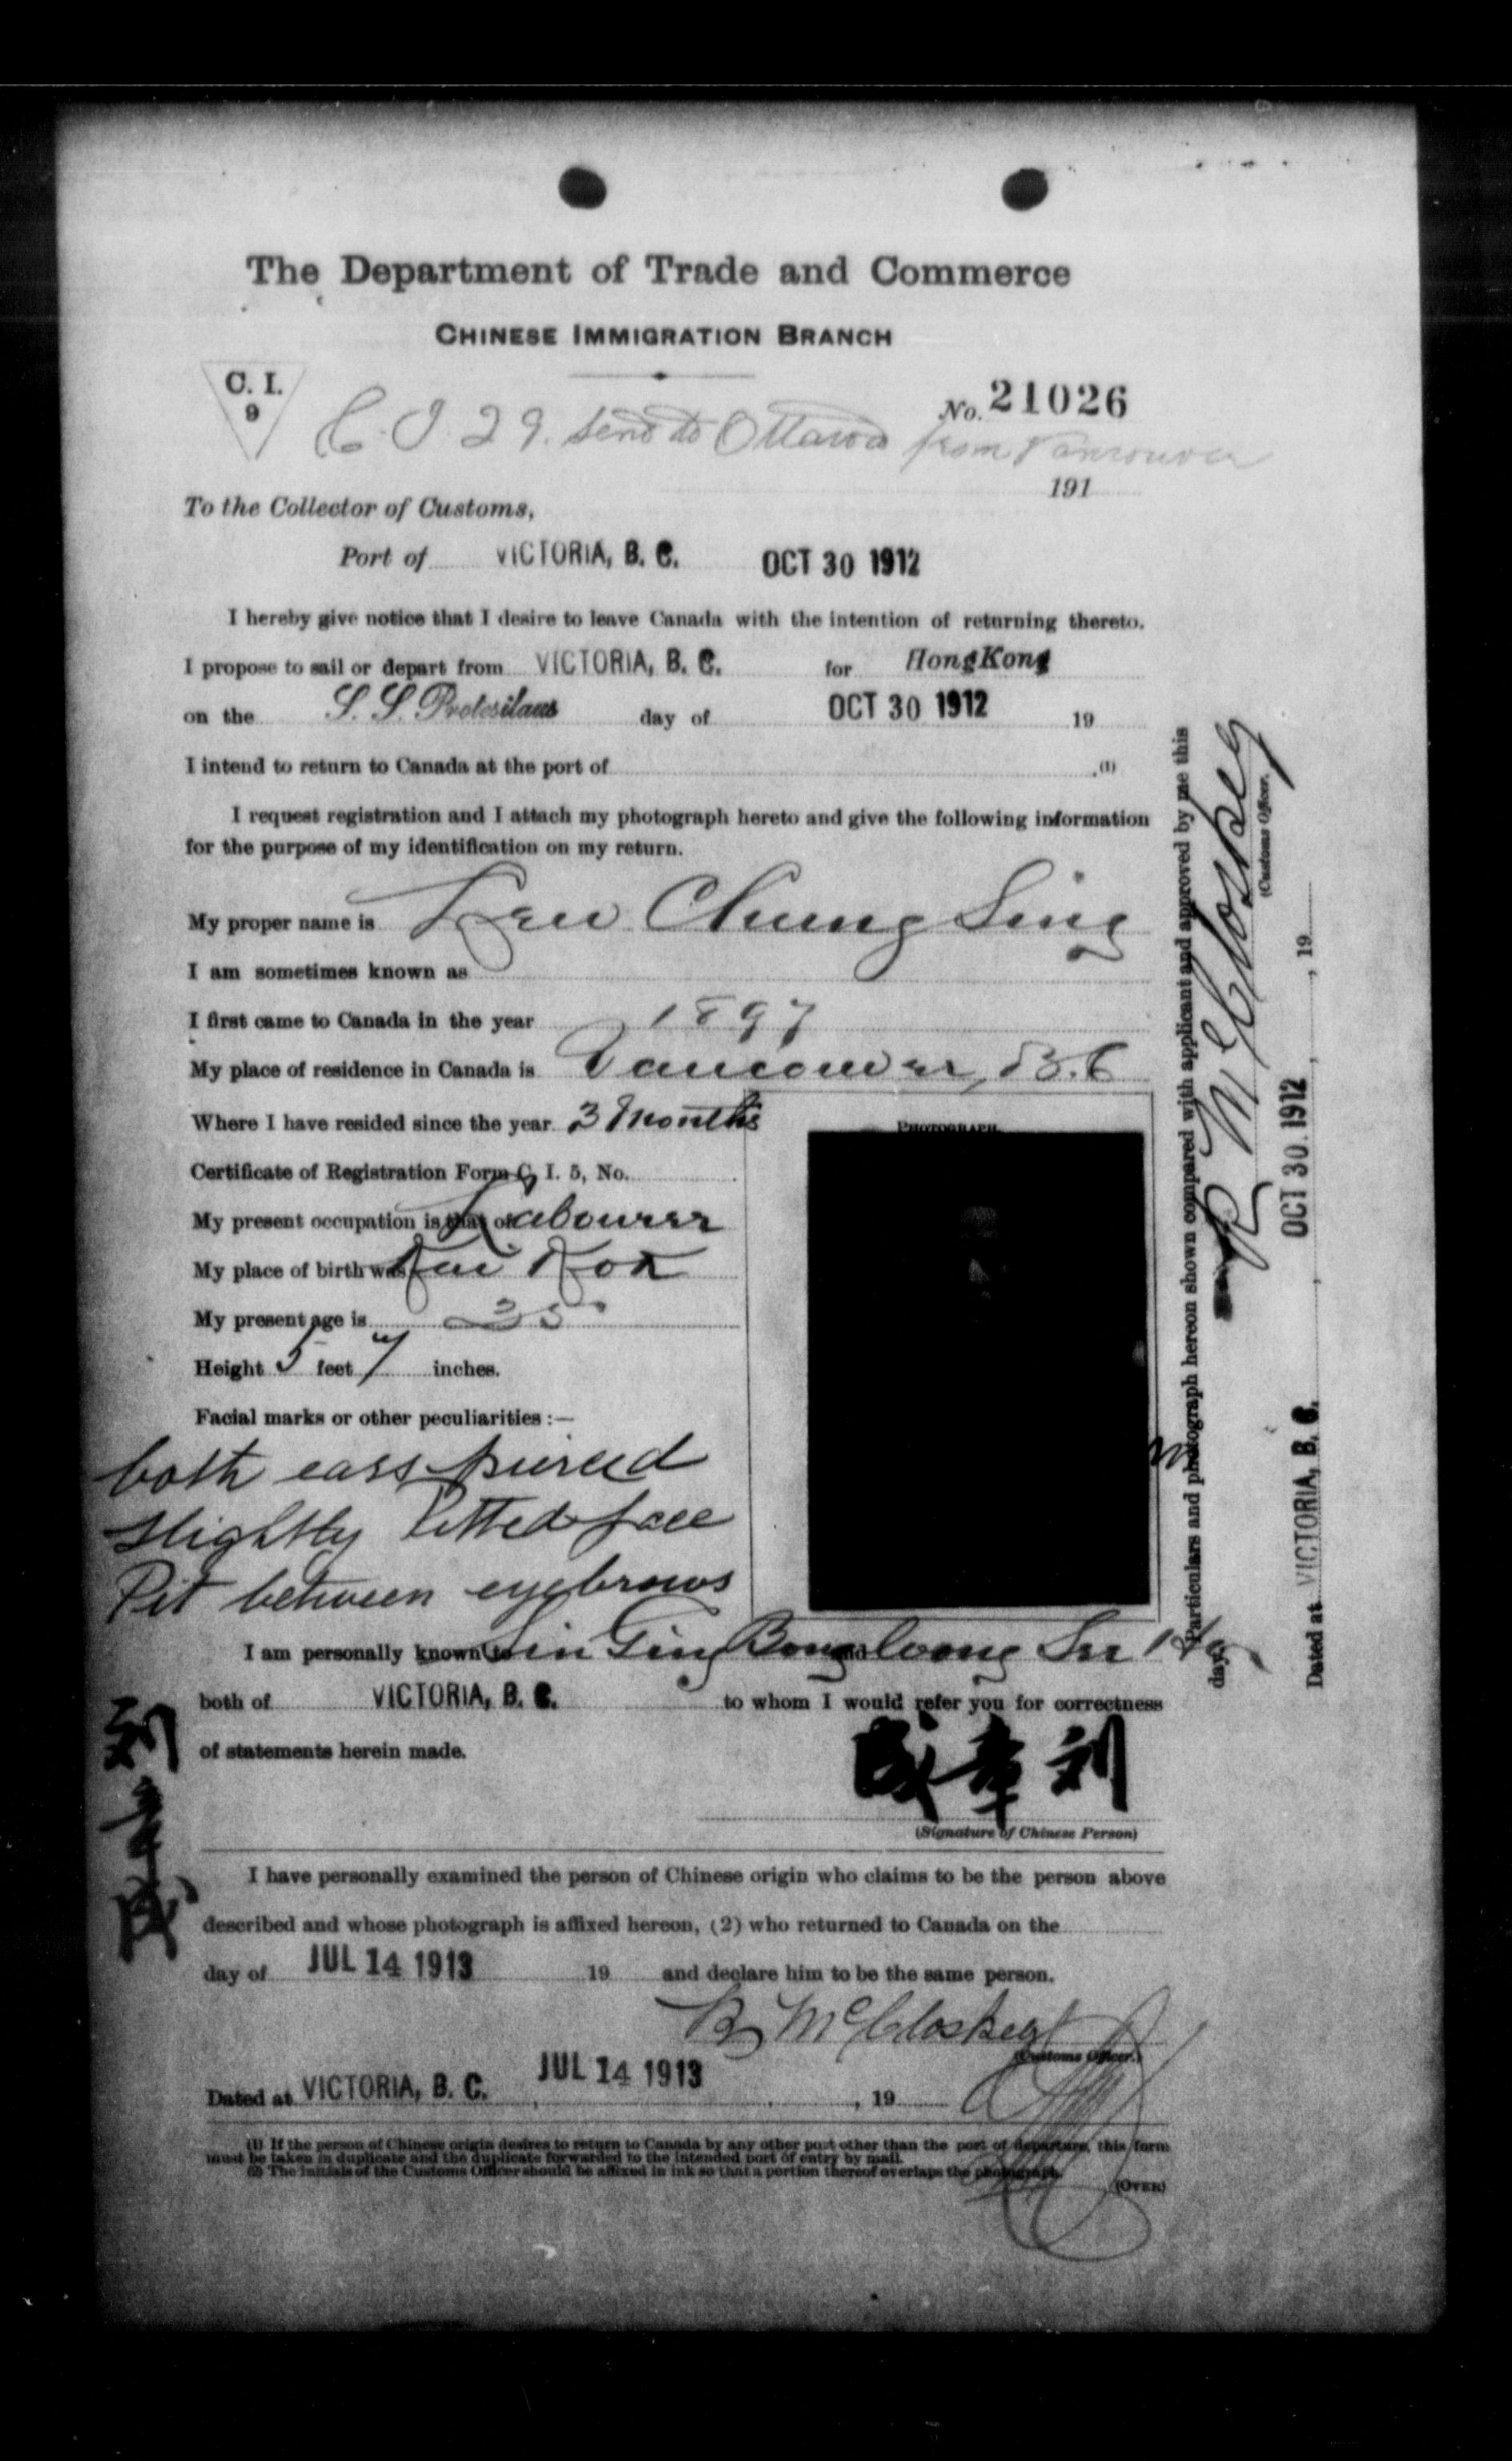 The Department of Trade and Commerce
CHINESE IMMIGRATION BRANCH
C. I.
9
No. 21026
C. I. 29. send to Ottawa from Vancouver
191
To the Collector of Customs,
Port of VICTORIA, B. C. OCT 30 1912
I hereby give notice that I desire to leave Canada with the intention of returning thereto.
I propose to sail or depart from VICTORIA, B. C. for HongKong
on the S. S. Protesilaus day of OCT 30 1912 19
I intend to return to Canada at the port of (1)
I request registration and I attach my photograph hereto and give the following information
for the purpose of my identification on my return.
My proper name is Lew Chung Sing
I am sometimes known as
I first came to Canada in the year 1897
My place of residence in Canada is Vancouver, B.C
Where I have resided since the year 3 Months
Certificate of Registration Form C. I. 5, No.
My present occupation is that of Labourer
My place of birth was
My present age is 35
Height 5 feet 7 inches.
Facial marks or other peculiarities :—
both ears pierced
slightly pitted face
Pit between eyebrows
PHOTOGRAPH.
I am personally known to
both of VICTORIA, B. C. to whom I would refer you for correctness
of statements herein made.
成章刘
(Signature of Chinese Person)
刘章成
I have personally examined the person of Chinese origin who claims to be the person above
described and whose photograph is affixed hereon, (2) who returned to Canada on the
day of JUL 14 1913 19 and declare him to be the same person.
B McCloskey
(Customs Officer.)
Dated at VICTORIA, B. C. , JUL 14 1913 , 19
(1) If the person of Chinese origin desires to return to Canada by any other port other than the port of departure, this form
must be taken in duplicate and the duplicate forwarded to the intended port of entry by mail.
(2) The initials of the Customs Officer should be affixed in ink so that a portion thereof overlaps the photograph.
(OVER)
Particulars and photograph hereon shown compared with applicant and approved by me this
day
B McCloskey
(Customs Officer.)
Dated at VICTORIA, B. C. , OCT 30 1912 , 19